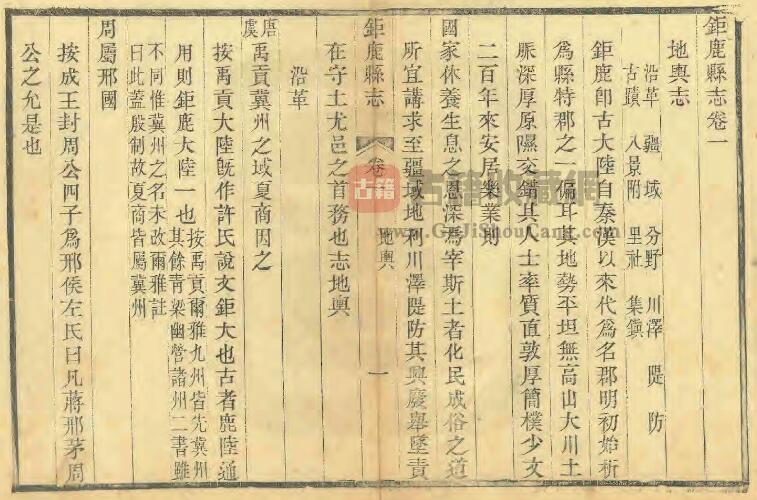 鉅鹿縣志卷一
地輿志
沿革 疆域 分野 川澤 隄防
古蹟 八景附 里社 集鎮
鉅鹿卽古大陸自秦漢以來代爲名郡明初始析
爲縣特郡之一偏耳其地勢平坦無高山大川土
脈深厚原隰交錯其人士率質直敦厚簡樸少文
二百年來安居樂業則
國家休養生息之恩深爲宰斯土者化民成俗之道
所宜講求至疆域地利川澤隄防其興廢舉墜責
在守土尤邑之首務也志地輿
鉅鹿縣志
卷一
地輿
一
沿革
唐虞
禹貢冀州之域夏商因之
按禹貢大陸旣作許氏說文鉅大也古者鹿陸通
用則鉅鹿大陸一也
按禹貢爾雅九州皆先冀州
其餘青梁幽營諸州二書雖
不同惟冀州之名未改爾雅註
曰此蓋殷制故夏商皆屬冀州
周屬邢國
按成王封周公四子爲邢侯左氏曰凡蔣邢茅周
公之允是也
古籍
古籍收藏網
www.GuJiShouCang.com